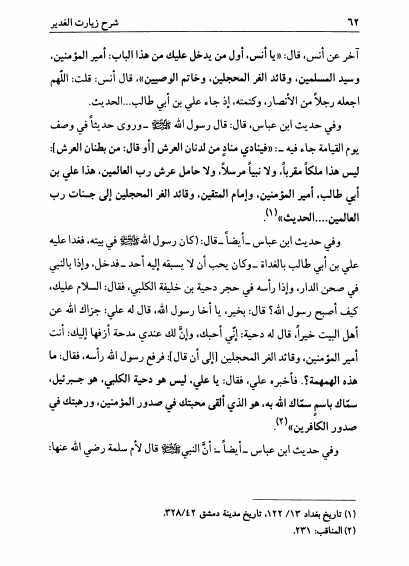 ٦٢ شرح زيارت الغدير
آخر عن أنس، قال: «يا أنس، أول من يدخل عليك من هذا الباب: أمير المؤمنين،
وسيد المسلمين، وقائد الغر المحجلين، وخاتم الوصيين»، قال أنس: قلت: اللّهم
اجعله رجلاً من الأنصار، وكتمته، إذ جاء علي بن أبي طالب...الحديث.
وفي حديث ابن عباس، قال: قال رسول الله ﷺ ـ وروى حديثاً في وصف
يوم القيامة جاء فيه ـ: «فينادي منادٍ من لدنان العرش [أو قال: من بطنان العرش]:
ليس هذا ملكاً مقرباً، ولا نبياً مرسلاً، ولا حامل عرش رب العالمين، هذا علي بن
أبي طالب، أمير المؤمنين، وإمام المتقين، وقائد الغر المحجلين إلى جنات رب
العالمين....الحديث»(١).
وفي حديث ابن عباس ـ أيضاً ـ قال: (كان رسول الله ﷺ في بيته، فغدا عليه
علي بن أبي طالب بالغداة ـ وكان يحب أن لا يسبقه إليه أحد ـ فدخل، وإذا بالنبي
في صحن الدار، وإذا رأسه في حجر دحية بن خليفة الكلبي، فقال: السلام عليك،
كيف أصبح رسول الله؟ قال: بخير، يا أخا رسول الله، قال له علي: جزاك الله عن
أهل البيت خيراً، قال له دحية: إنّي أحبك، وإنَّ لك عندي مدحة أزفها إليك: أنت
أمير المؤمنين، وقائد الغر المحجلين [إلى أن قال]: فرفع رسول الله رأسه، فقال: ما
هذه الهمهمة؟. فأخبره علي، فقال: يا علي، ليس هو دحية الكلبي، هو جبرئيل،
سمّاك باسمٍ سمّاك الله به، هو الذي ألقى محبتك في صدور المؤمنين، ورهبتك في
صدور الكافرين»(٢).
وفي حديث ابن عباس ـ أيضاً ـ: أنَّ النبي ﷺ قال لأم سلمة رضي الله عنها:
(١) تاريخ بغداد ١٣/ ١٢٢، تاريخ مدينة دمشق ٣٢٨/٤٢.
(٢) المناقب: ٢٣١.